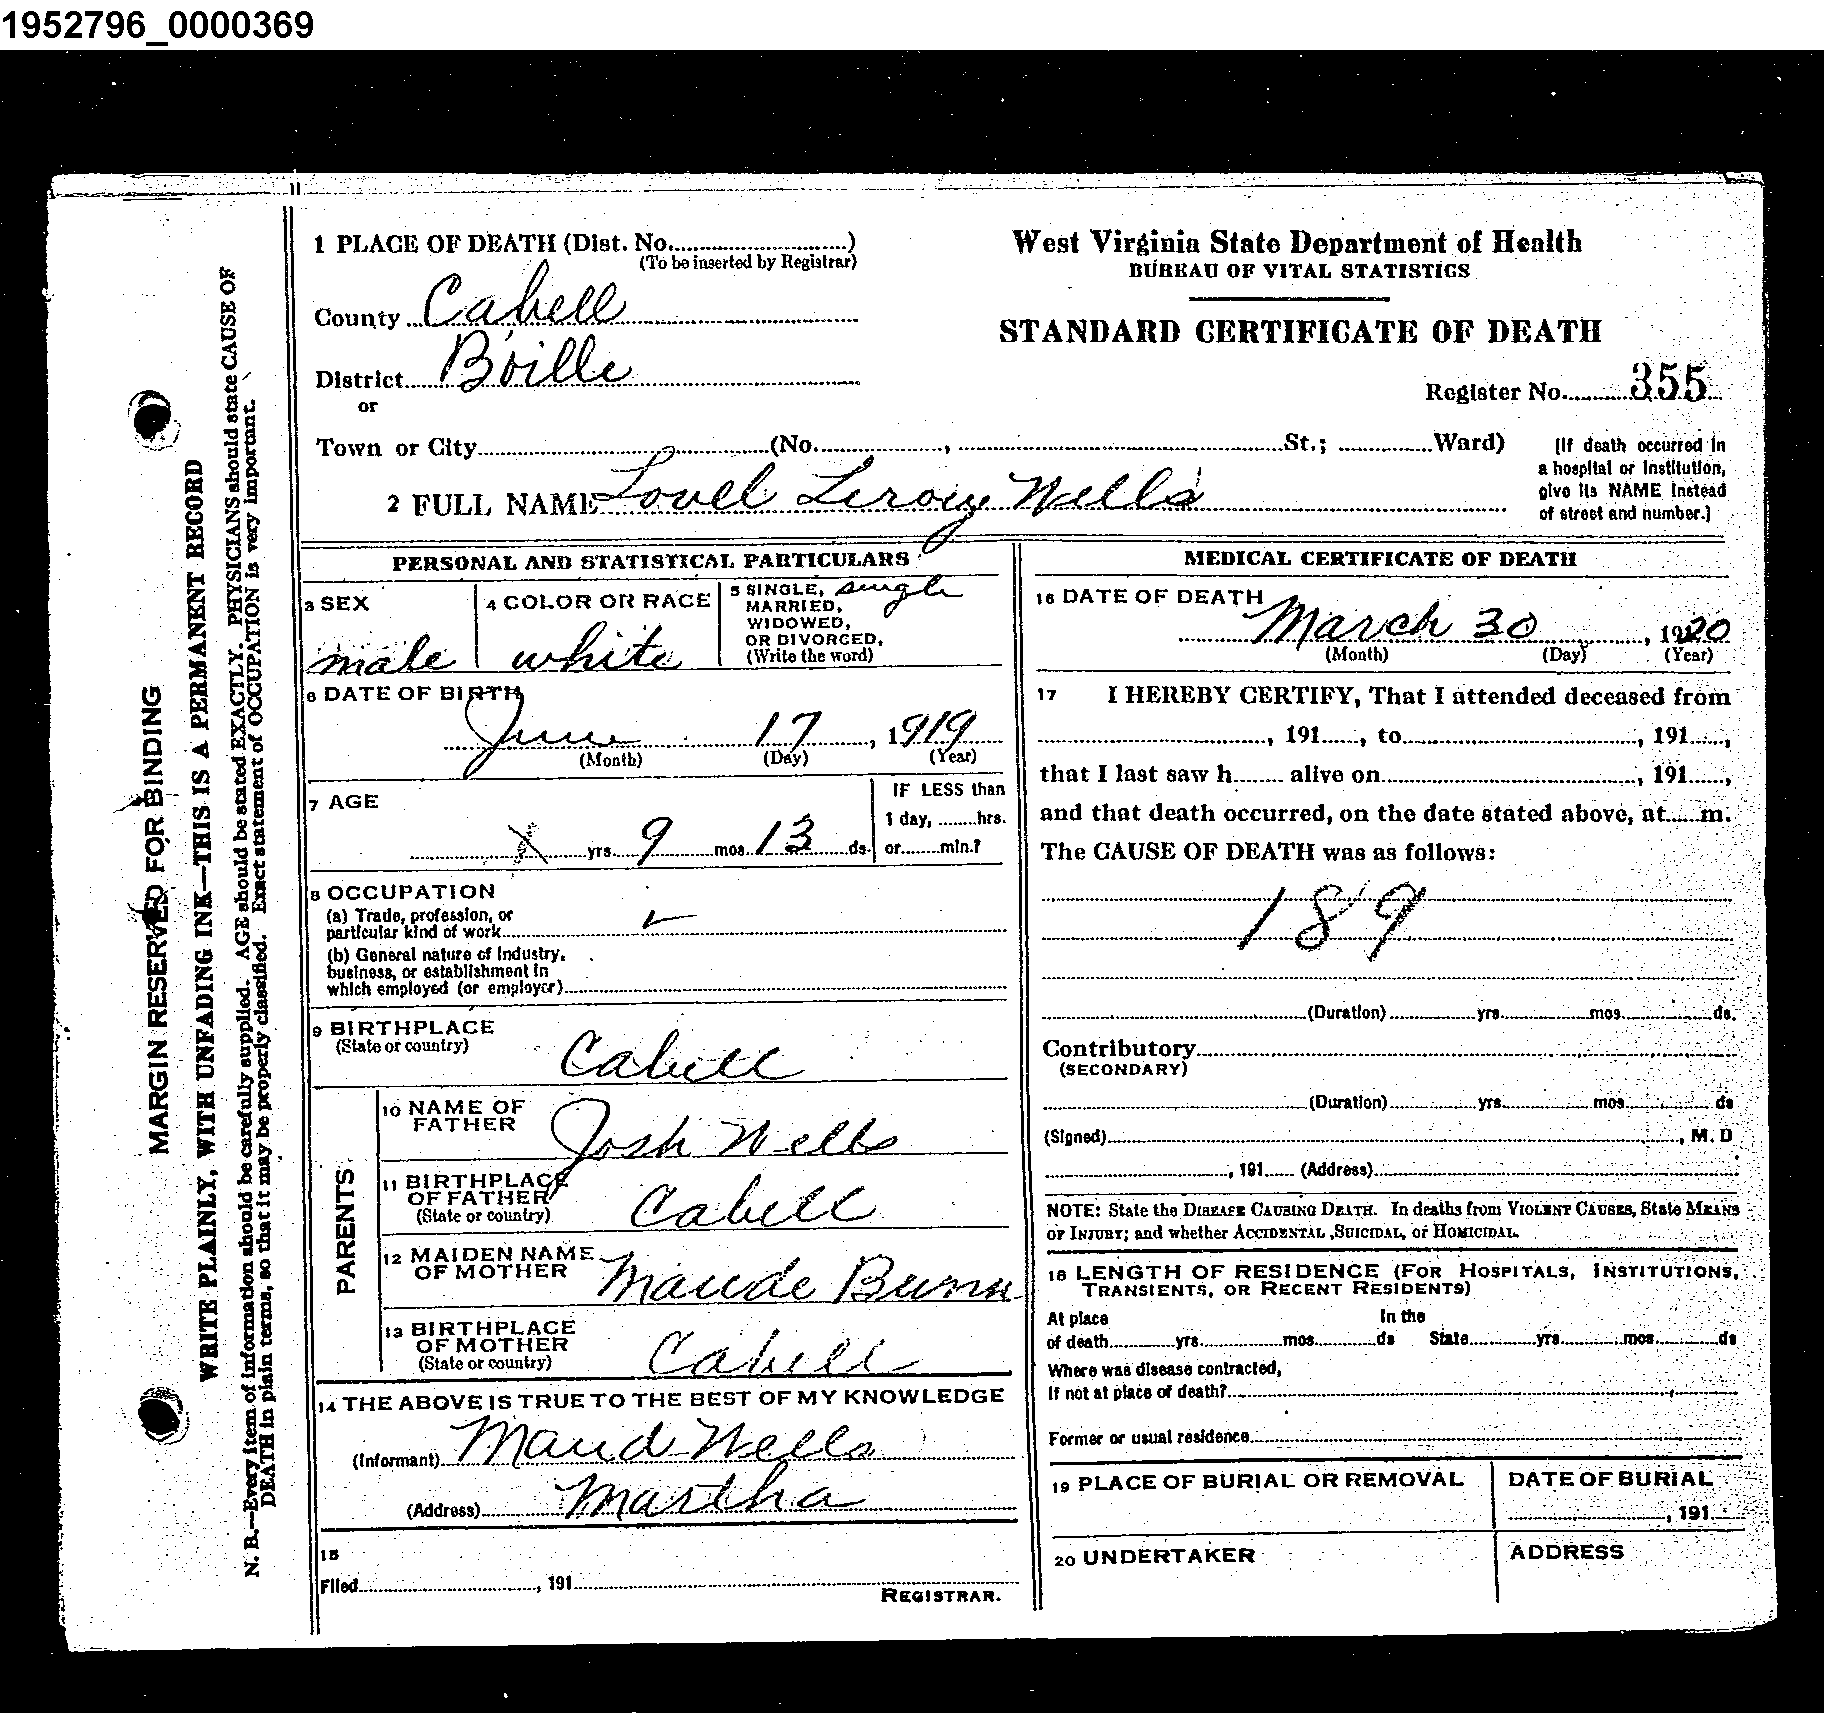 1952796_0000369
1 PLACE OF DEATH (Dist. No..............................)
(To be inserted by Registrar)
County Cabell
District B'ville
or
Town or City (No. , St.; Ward)
2 FULL NAME Lovel Leroy Wells
West Virginia State Department of Health
BUREAU OF VITAL STATISTICS
STANDARD CERTIFICATE OF DEATH
Register No. 355
(If death occurred in
a hospital or institution,
give its NAME instead
of street and number.)
PERSONAL AND STATISTICAL PARTICULARS
3 SEX
male
4 COLOR OR RACE
white
5 SINGLE,
MARRIED,
WIDOWED,
OR DIVORCED,
(Write the word)
single
6 DATE OF BIRTH
June 17, 1919
(Month) (Day) (Year)
7 AGE
X yrs. 9 mos. 13 ds.
IF LESS than
1 day, ........hrs.
or........min.?
8 OCCUPATION
(a) Trade, profession, or
particular kind of work
(b) General nature of Industry,
business, or establishment in
which employed (or employer)
9 BIRTHPLACE
(State or country)
Cabell
PARENTS
10 NAME OF
FATHER
Josh Wells
11 BIRTHPLACE
OF FATHER
(State or country)
Cabell
12 MAIDEN NAME
OF MOTHER
Maude
13 BIRTHPLACE
OF MOTHER
(State or country)
Cabell
14 THE ABOVE IS TRUE TO THE BEST OF MY KNOWLEDGE
(Informant) Maud Wells
(Address) Martha
15
Filed , 191
REGISTRAR.
MEDICAL CERTIFICATE OF DEATH
16 DATE OF DEATH
March 30, 1920
(Month) (Day) (Year)
17 I HEREBY CERTIFY, That I attended deceased from
, 191......, to , 191......,
that I last saw h........ alive on , 191......,
and that death occurred, on the date stated above, at......m.
The CAUSE OF DEATH was as follows:
189
(Duration) yrs. mos. ds.
Contributory
(SECONDARY)
(Duration) yrs. mos. ds
(Signed) , M. D
, 191...... (Address)
NOTE: State the DISEASE CAUSING DEATH. In deaths from VIOLENT CAUSES, State MEANS
OF INJURY; and whether ACCIDENTAL ,SUICIDAL, of HOMICIDAL.
18 LENGTH OF RESIDENCE (FOR HOSPITALS, INSTITUTIONS,
TRANSIENTS, OR RECENT RESIDENTS)
At place In the
of death yrs. mos. ds State yrs. mos. ds
Where was disease contracted,
If not at place of death?
Former or usual residence
19 PLACE OF BURIAL OR REMOVAL
DATE OF BURIAL
, 191
20 UNDERTAKER
ADDRESS
MARGIN RESERVED FOR BINDING
WRITE PLAINLY, WITH UNFADING INK—THIS IS A PERMANENT RECORD
N. B.—Every item of information should be carefully supplied. AGE should be stated EXACTLY. PHYSICIANS should state CAUSE OF
DEATH in plain terms, so that it may be properly classified. Exact statement of OCCUPATION is very important.